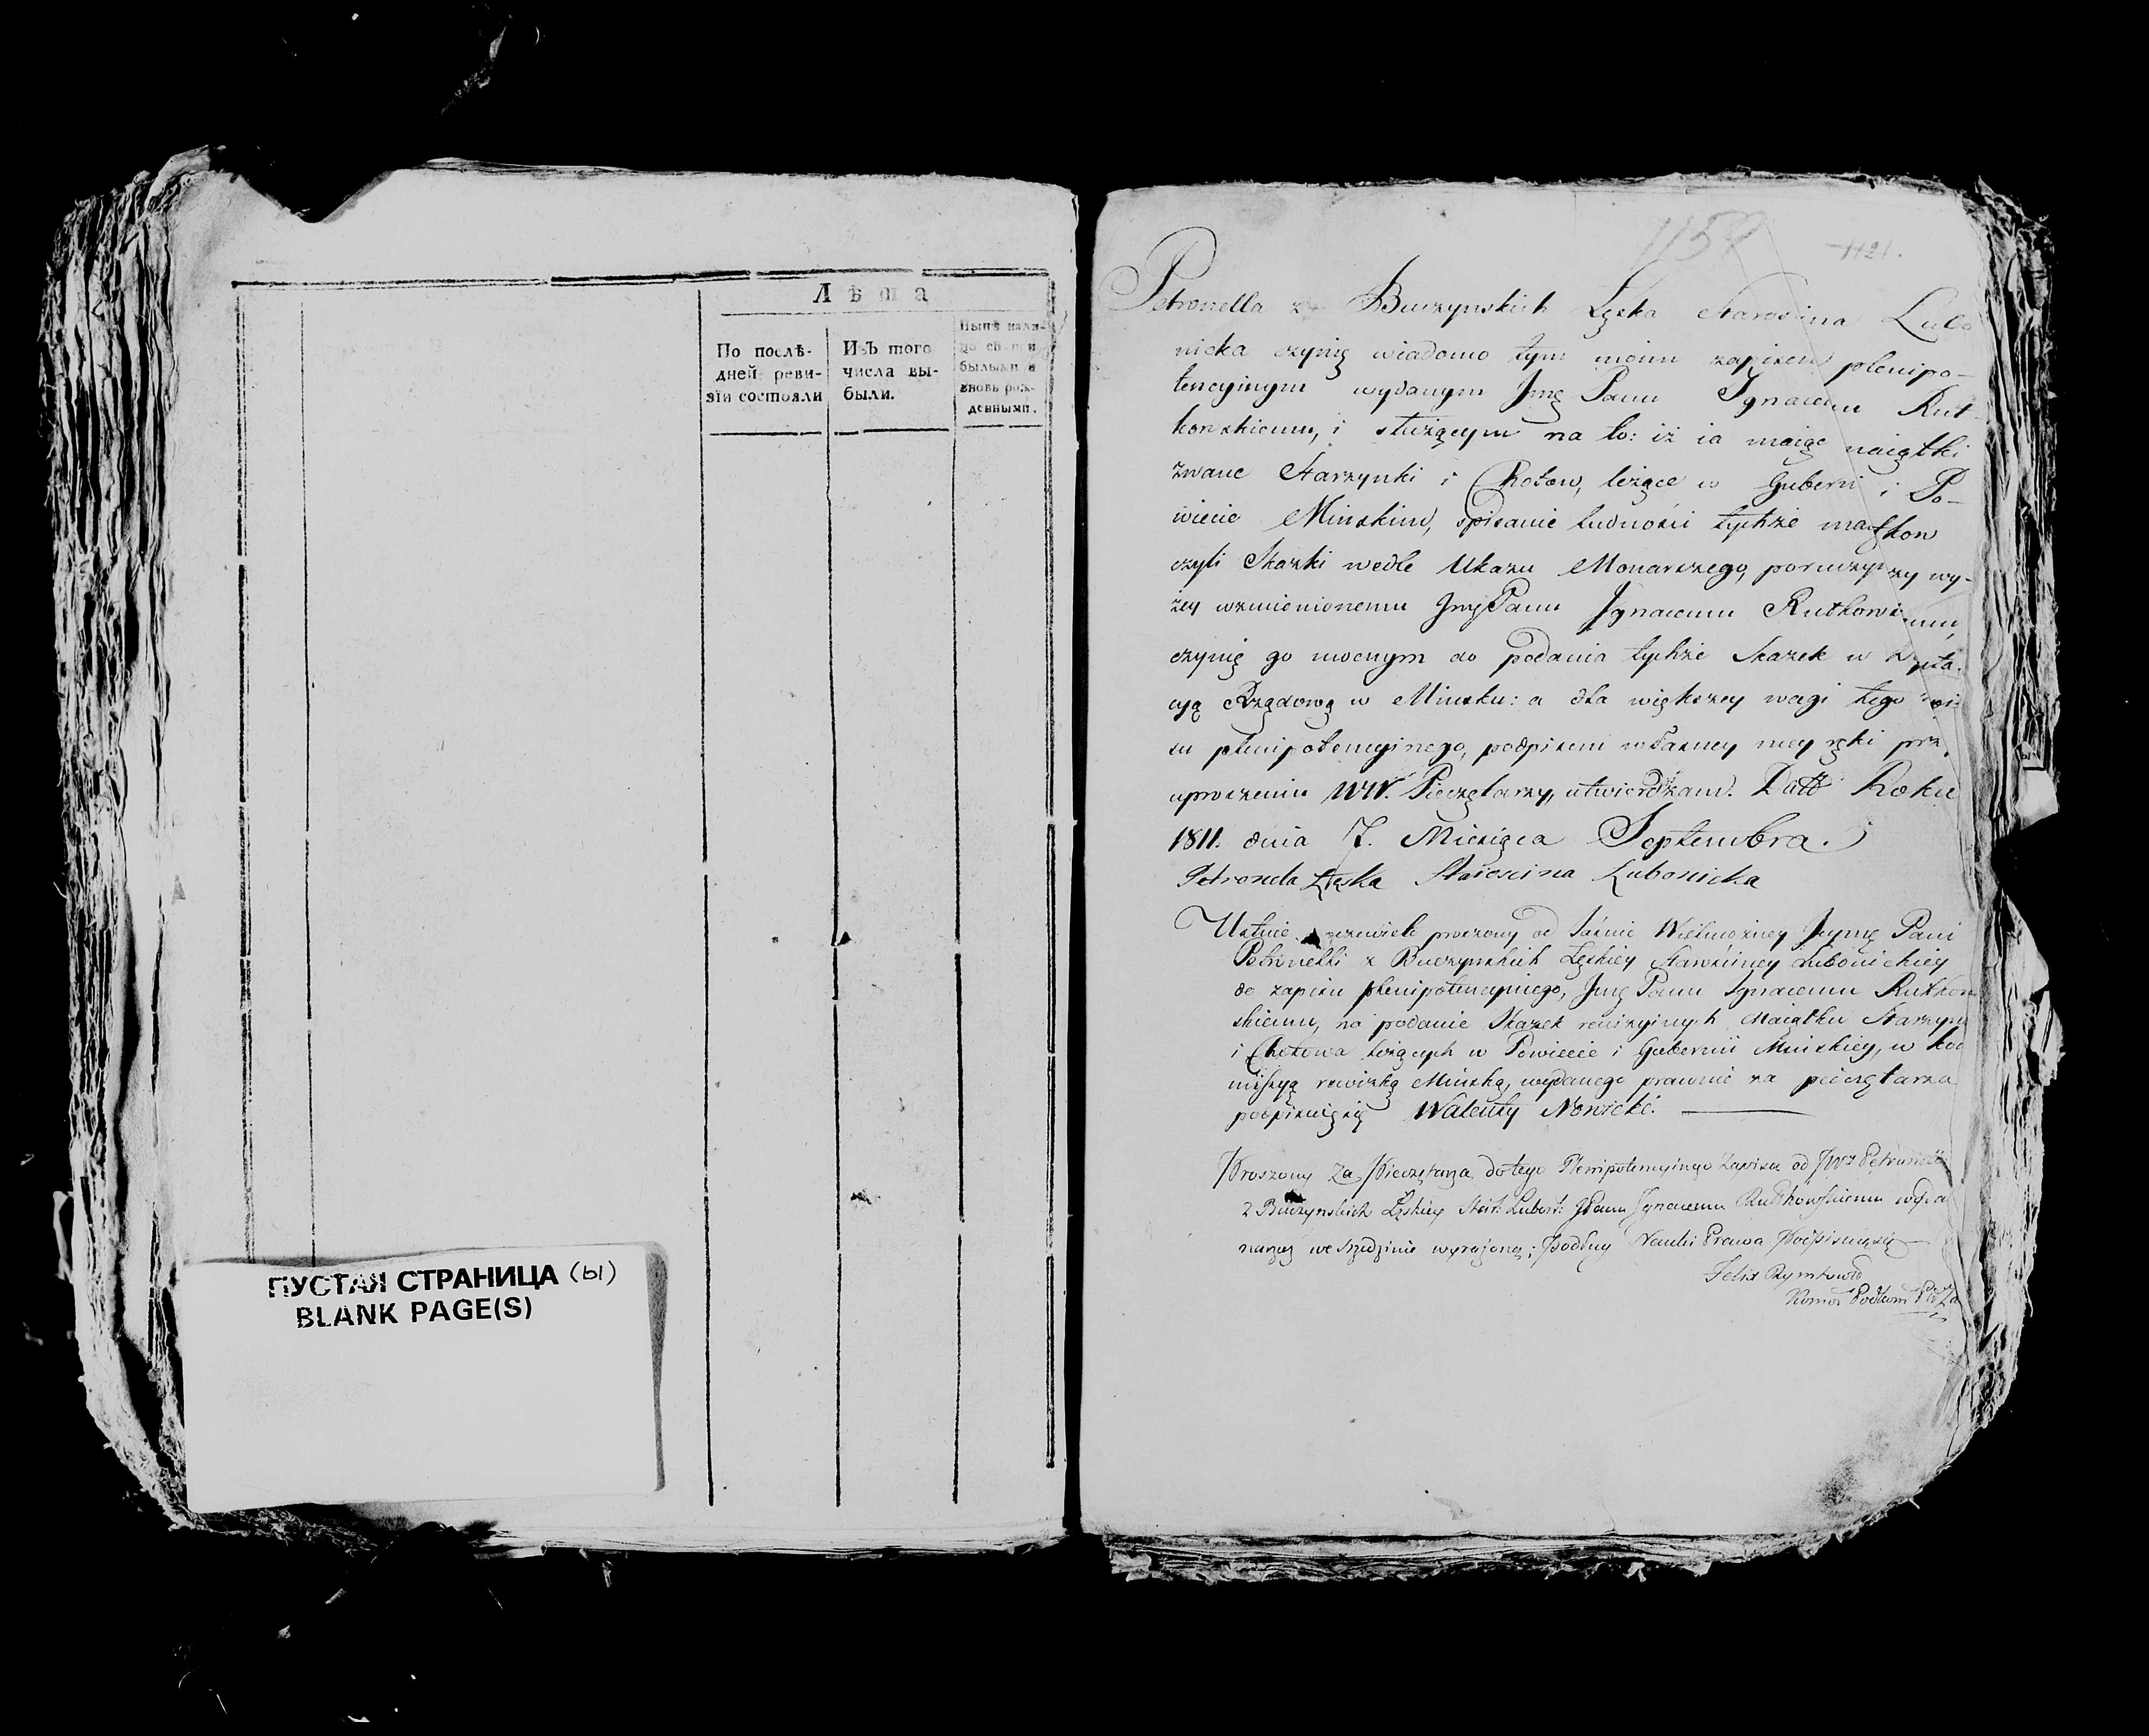 Лѣта
По послѣ-
дней реви-
зїи состояли
Изъ того
числа вы-
были.
Нынѣ нали-
былыми и
вновь рож-
денными.
ПУСТАЯ СТРАНИЦА (ы)
BLANK PAGE(S)
1121.
Petronella z Buczynskich Łęska Starościna Lubo
nicka czynię wiadomo tym moim zapisem plenipo-
tencyinym wydanym Jmę Panu Ignacemu Rut-
kowskiemu, i służącym na to: iż ia maiąc maiątki
zwane Starzynki i Chotow, leżące w Guberni i Po-
wiecie Minskim, spisanie ludności tychże maiątkow
czyli Skazki wedle Ukazu Monarszego, poruczywszy wy-
żey wzmienionemu Jmę Panu Ignacemu Rutkowskiemu,
czynię go mocnym do podania tychże Skazek w
cyą Rządową w Minsku: a dla większey wagi tego zapi
su plenipotencyinego, podpisem własney mey ręki przy
uproszeniu WW. Pieczętarzy, utwierdzam. Datt Roku
1811. dnia 7. Miesiąca Septembra.
Petronela Łęska Starościna Lubonicka
Ustnie oczewisto proszony od Jaśnie Wielmożney Jeymę Pani
Petronelli z Buczynskich Łęskiey Starościney Lubonickiey
do zapisu plenipotencyinego, Jmę Panu Ignacemu Rutkow
skiemu, na podanie Skazek rewizyinych Maiątku Starzyn
i Chotowa leżących w Powiecie i Gubernii Minskiey, w Ko
missyą rewizką Minską, wydanego prawnie za pieczętarza
podpisuię się Walenty Nowicki.
Proszony Za Pieczętarza do tego Plenipotencyinego Zapisu od JWney Petronelli
z Buczynskich Łęskiey Star: Lubon: JPanu Ignacemu Rutkowskiemu wyda
we srzedzinie wyrażoną; podług Nauki Prawa Podpisuię się
Felix Rymkowid
Komor